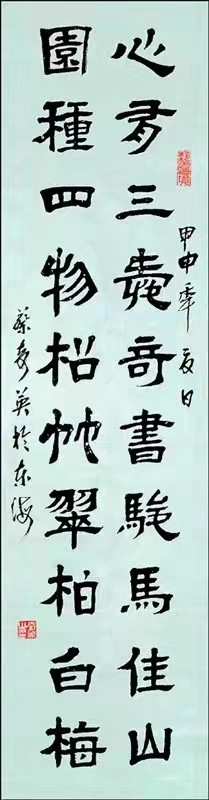 甲申年夏日
心有三愛奇書駿馬佳山
園種四物松竹翠柏白梅
蔡秀英於东海